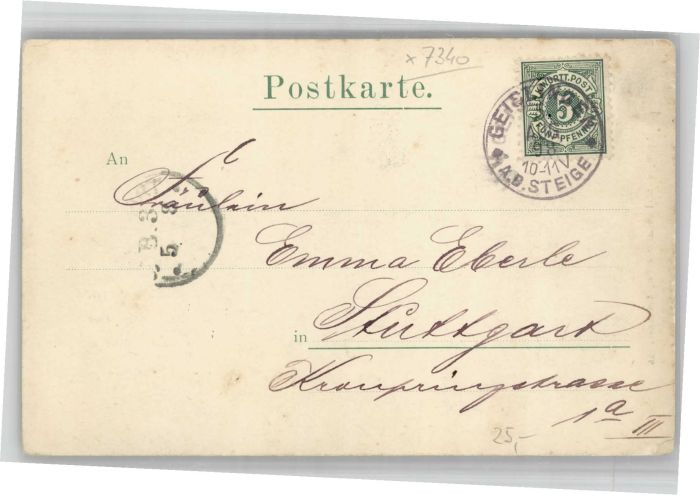 x 7340
Postkarte.
WÜRTT. POST
5
FÜNF PFENNIG
GEISL
10-11V
A.D. STEIGE
An
Fräulein
Emma Eberle
in Stuttgart
Kronprinzstrasse
1a III
25,-